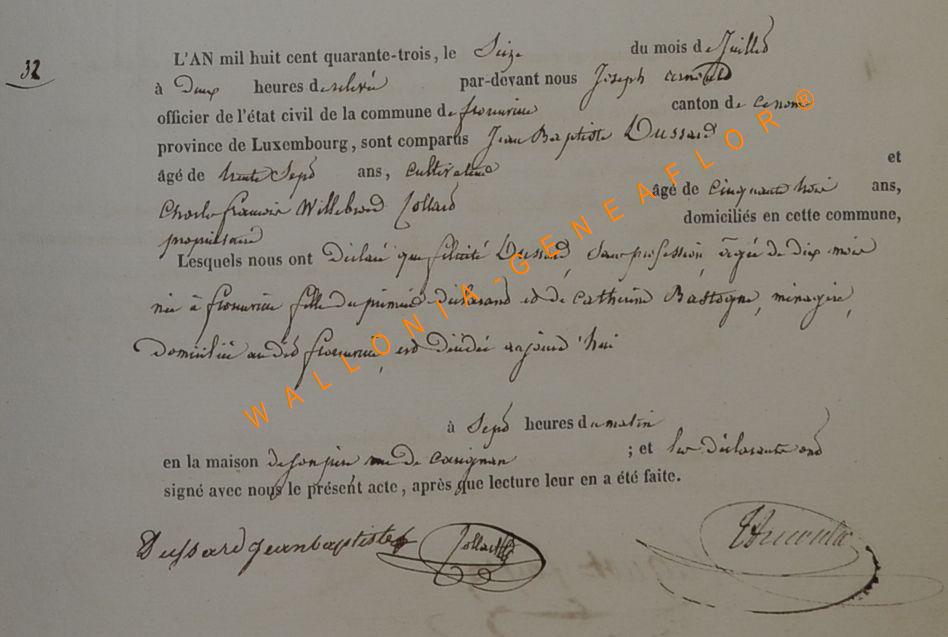 32
L'AN mil huit cent quarante-trois, le Seize du mois de Juillet
à Deux heures de relevée par-devant nous Joseph arnould
officier de l'état civil de la commune de florenville canton de
province de Luxembourg, sont comparus Jean Baptiste Dussard
âgé de trente Sept ans, cultivateur et
Charles françois Willebrord Jollard âgé de cinquante trois ans,
propriétaire domiciliés en cette commune,
Lesquels nous ont Déclaré que félicité Dussard, Sans profession, âgée de dix mois
née à florenville fille du premier déclarant et de Catherine Bastogne, ménagère,
domiciliée au dit florenville, est décédée aujourd'hui
à Sept heures du matin
en la maison de son père rue de Carignan ; et les déclarants ont
signé avec nous le présent acte, après que lecture leur en a été faite.
Dussard jean baptiste Jollard
WALLONIA-GENEAFLOR®